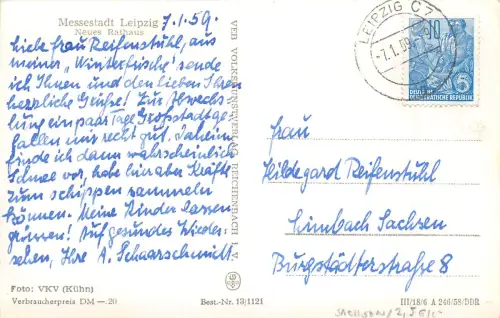 Messestadt Leipzig
Neues Rathaus
7.1.59.
Liebe Frau Reifenstuhl, aus
meiner „Winterfrische" sende
ich Ihnen und den lieben Ihren
herzliche Grüße! Zur Abwechs-
lung ein paar Tage Großstadt ge-
fallen mir recht gut. Daheim
finde ich dann wahrscheinlich
Schnee vor, habe hier aber Kräfte
zum schippen sammeln
können. Meine Kinder lassen
grüssen! Auf gesundes Wieder-
sehen, Ihre A. Schaarschmidt
Foto: VKV (Kühn)
Verbraucherpreis DM —.20
Best.-Nr. 13/1121
VEB VOLKSKUNSTVERLAG REICHENBACH V.
LEIPZIG C 7
-7.1.59.
10
DEUTSCHE
DEMOKRATISCHE REPUBLIK
5
Frau
Hildegard Reifenstuhl
Limbach Sachsen
Burgstädterstraße
III/18/6 A 246/58/DDR
SACHSEN/